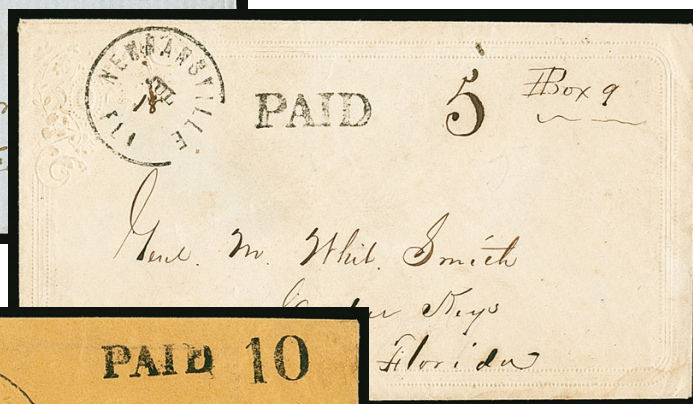 NEWNANSVILLE
JUL
18
Fla
PAID 5 Box 9
Genl. M. Whit. Smith
Keys
Florida
PAID 10